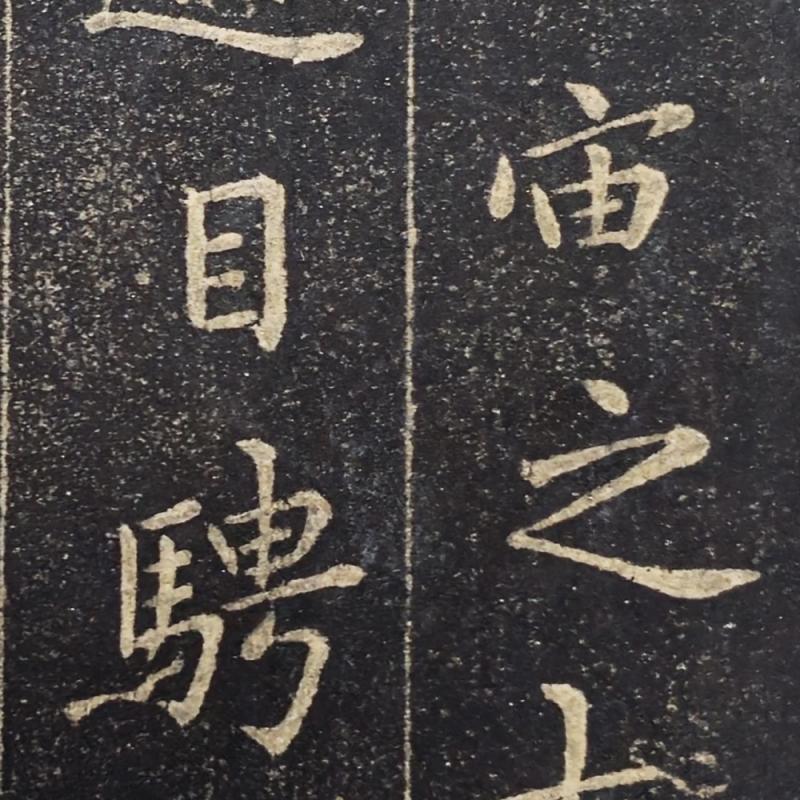 宙之
目騁